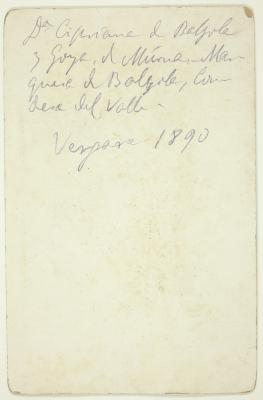 Dª Cipriana de Balzola
y Goya, de Murua, Mar-
quesa de Balzola, Con-
desa del Valle.
Vergara 1890